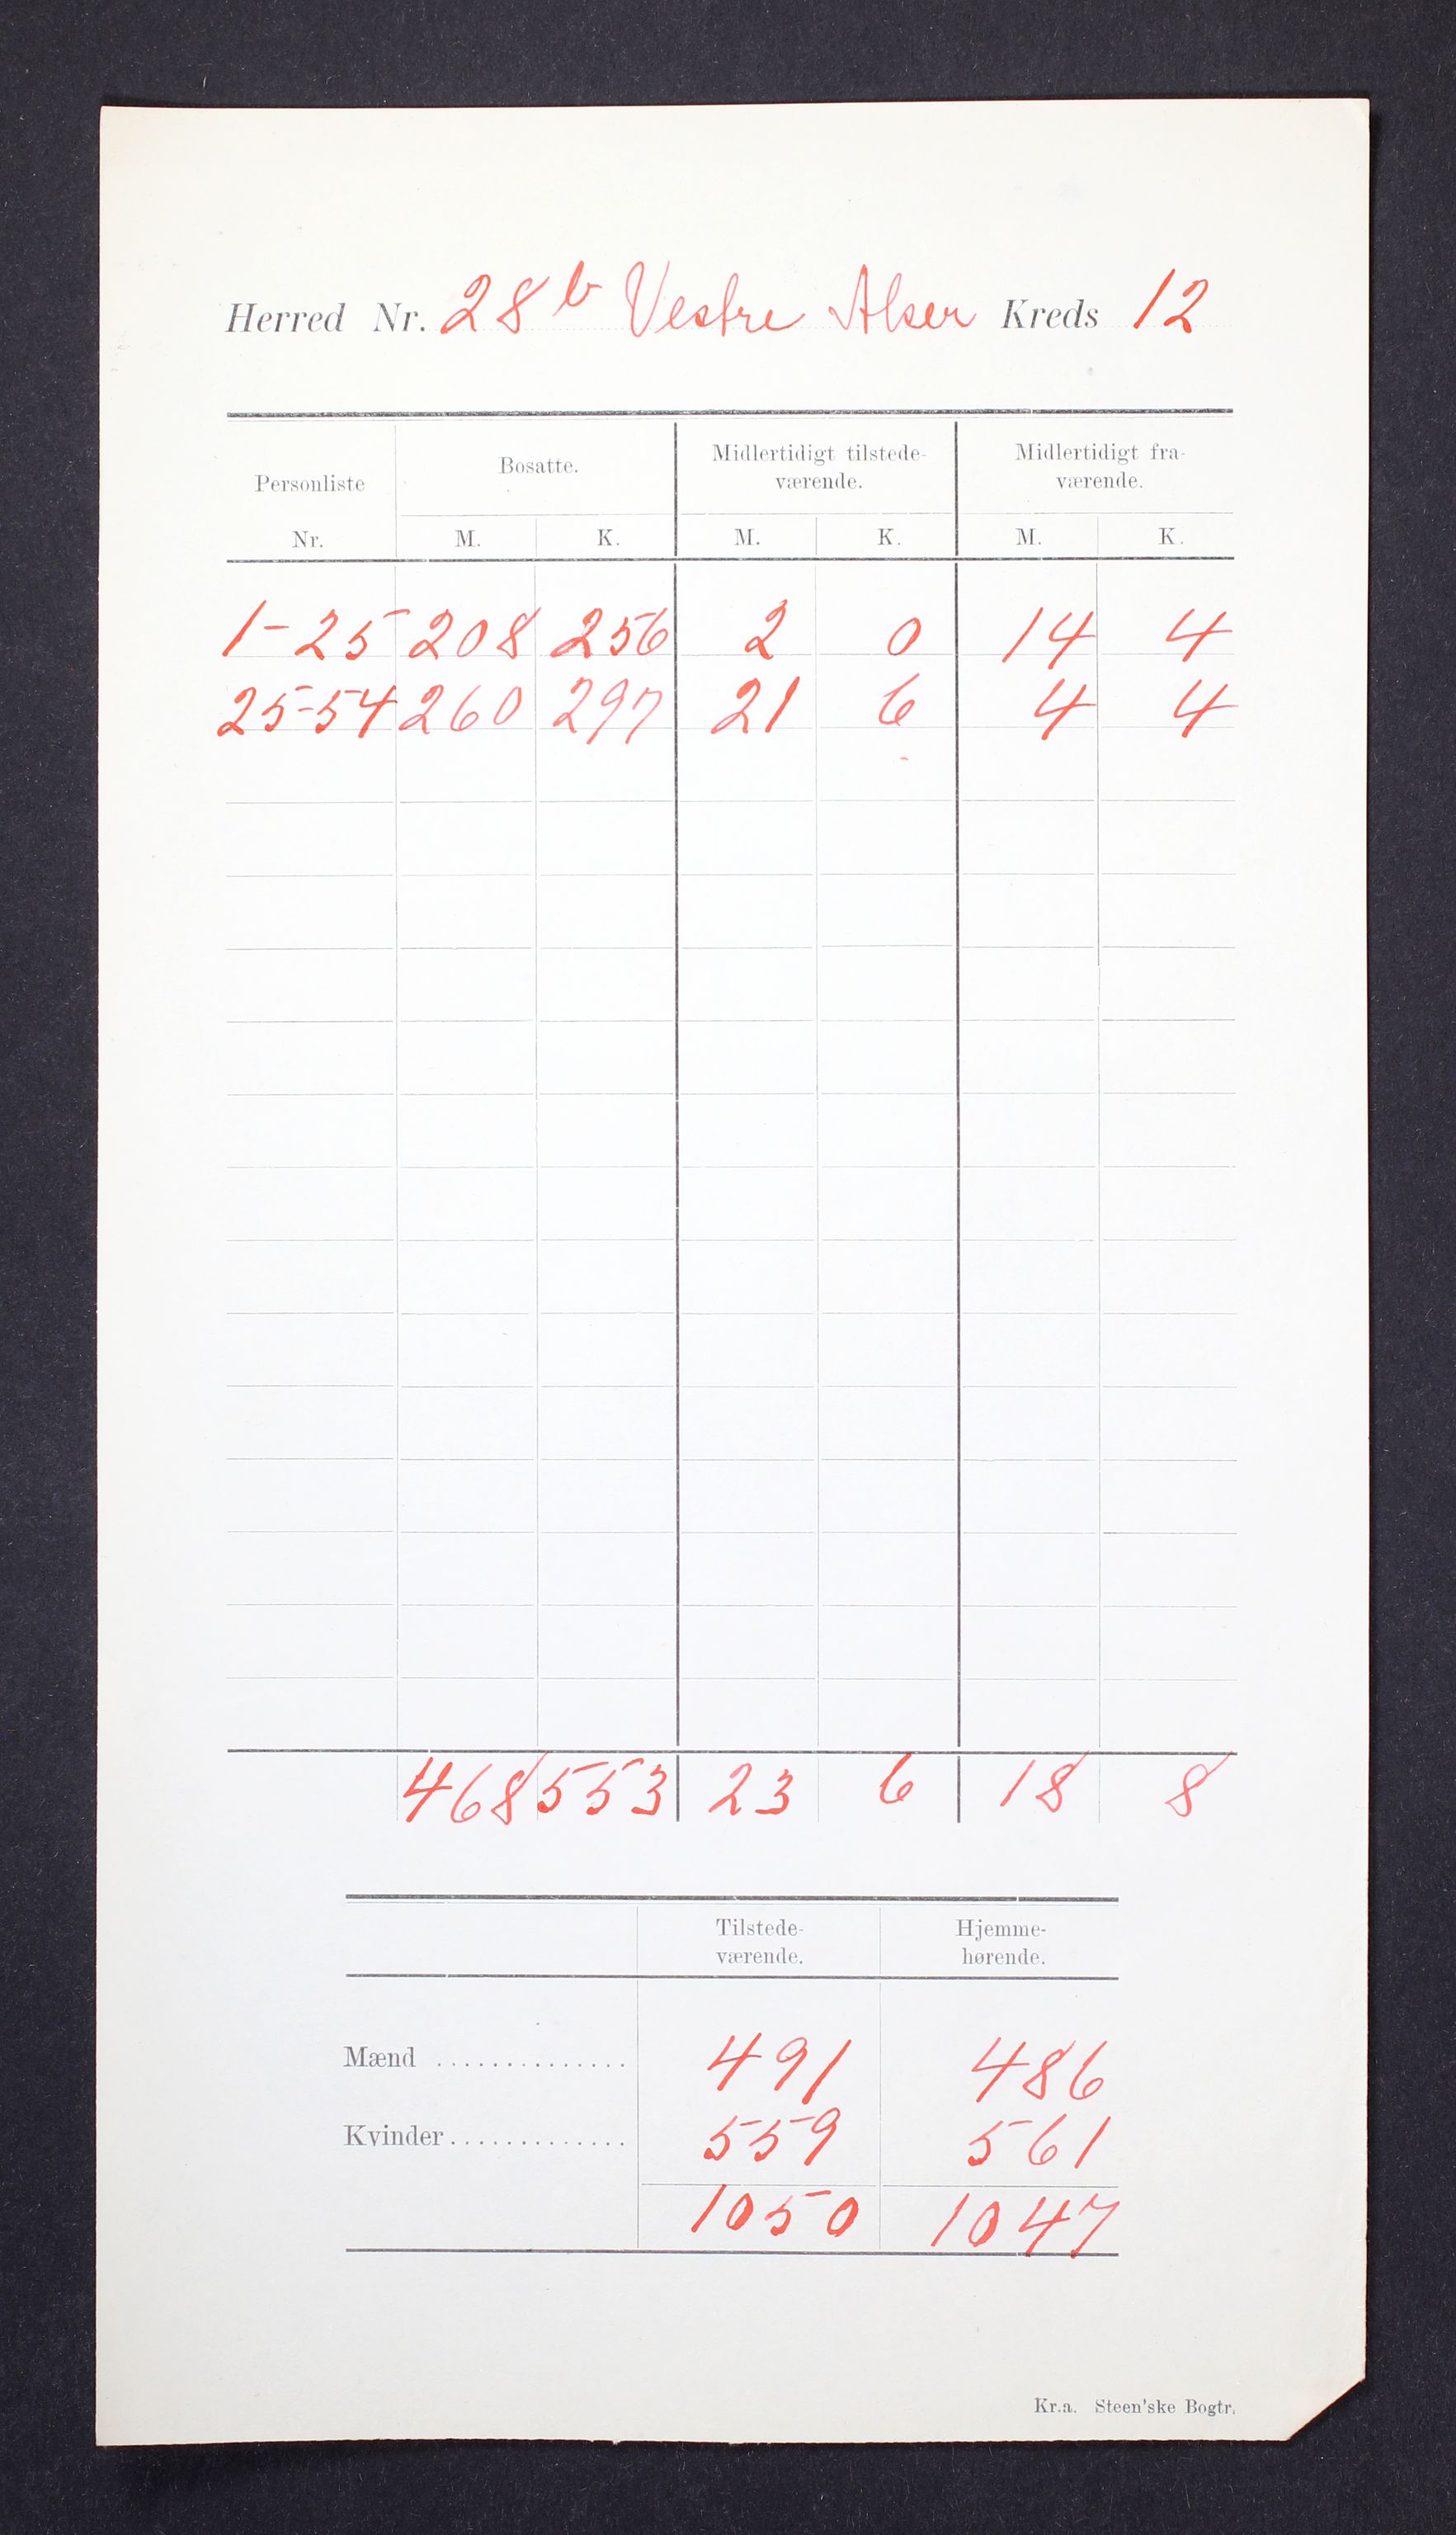 Herred Nr. 28b Vestre Aker Kreds 12
Personliste Nr. Bosatte. Midlertidigt tilstede-værende. Midlertidigt fra-værende.
M. K. M. K. M. K.
1-25 208 256 2 0 14 4
25-54 260 297 21 6 4 4
468 553 23 6 18 8
Tilstede-værende. Hjemme-hørende.
Mænd .............. 491 486
Kvinder ............. 559 561
1050 1047
Kr.a. Steen'ske Bogtr.